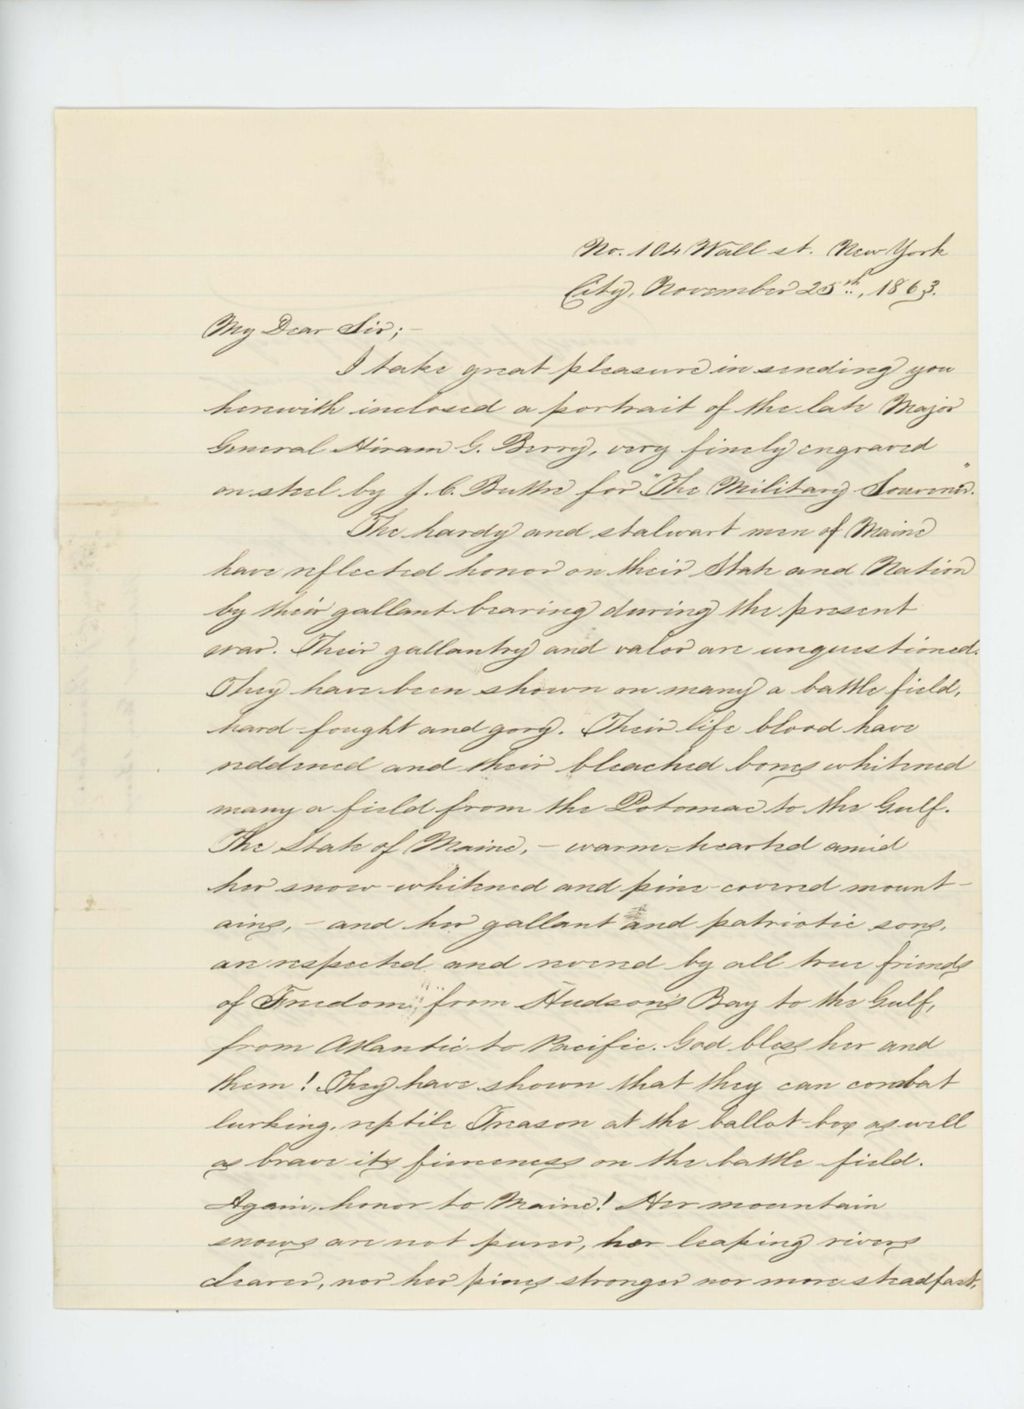 No. 104 Wall st. New York
City, November 25th, 1863.
My Dear Sir; -
I take great pleasure in sending you
herewith inclosed a portrait of the late Major
General Hiram G. Berry, very finely engraved
on steel by J. C. Buttre for "The Military Souvenir."
The hardy and stalwart men of Maine
have reflected honor on their State and Nation
by their gallant bearing during the present
war. Their gallantry and valor are unquestioned.
They have been shown on many a battle field,
hard-fought and gory. Their life blood have
reddened and their bleached bones whitened
many a field from the Potomac to the Gulf.
The State of Maine, - warm-hearted amid
her snow-whitened and pine-covered mount-
ains, - and her gallant and patriotic sons,
are respected and revered by all true friends
of Freedom, from Hudson's Bay to the Gulf,
from Atlantic to Pacific. God bless her and
them! They have shown that they can combat
lurking, reptile Treason at the ballot-box as well
as brave its fierceness on the battle-field.
Again, honor to Maine! Her mountain
snows are not purer, her leaping rivers
clearer, nor her pines stronger nor more steadfast,